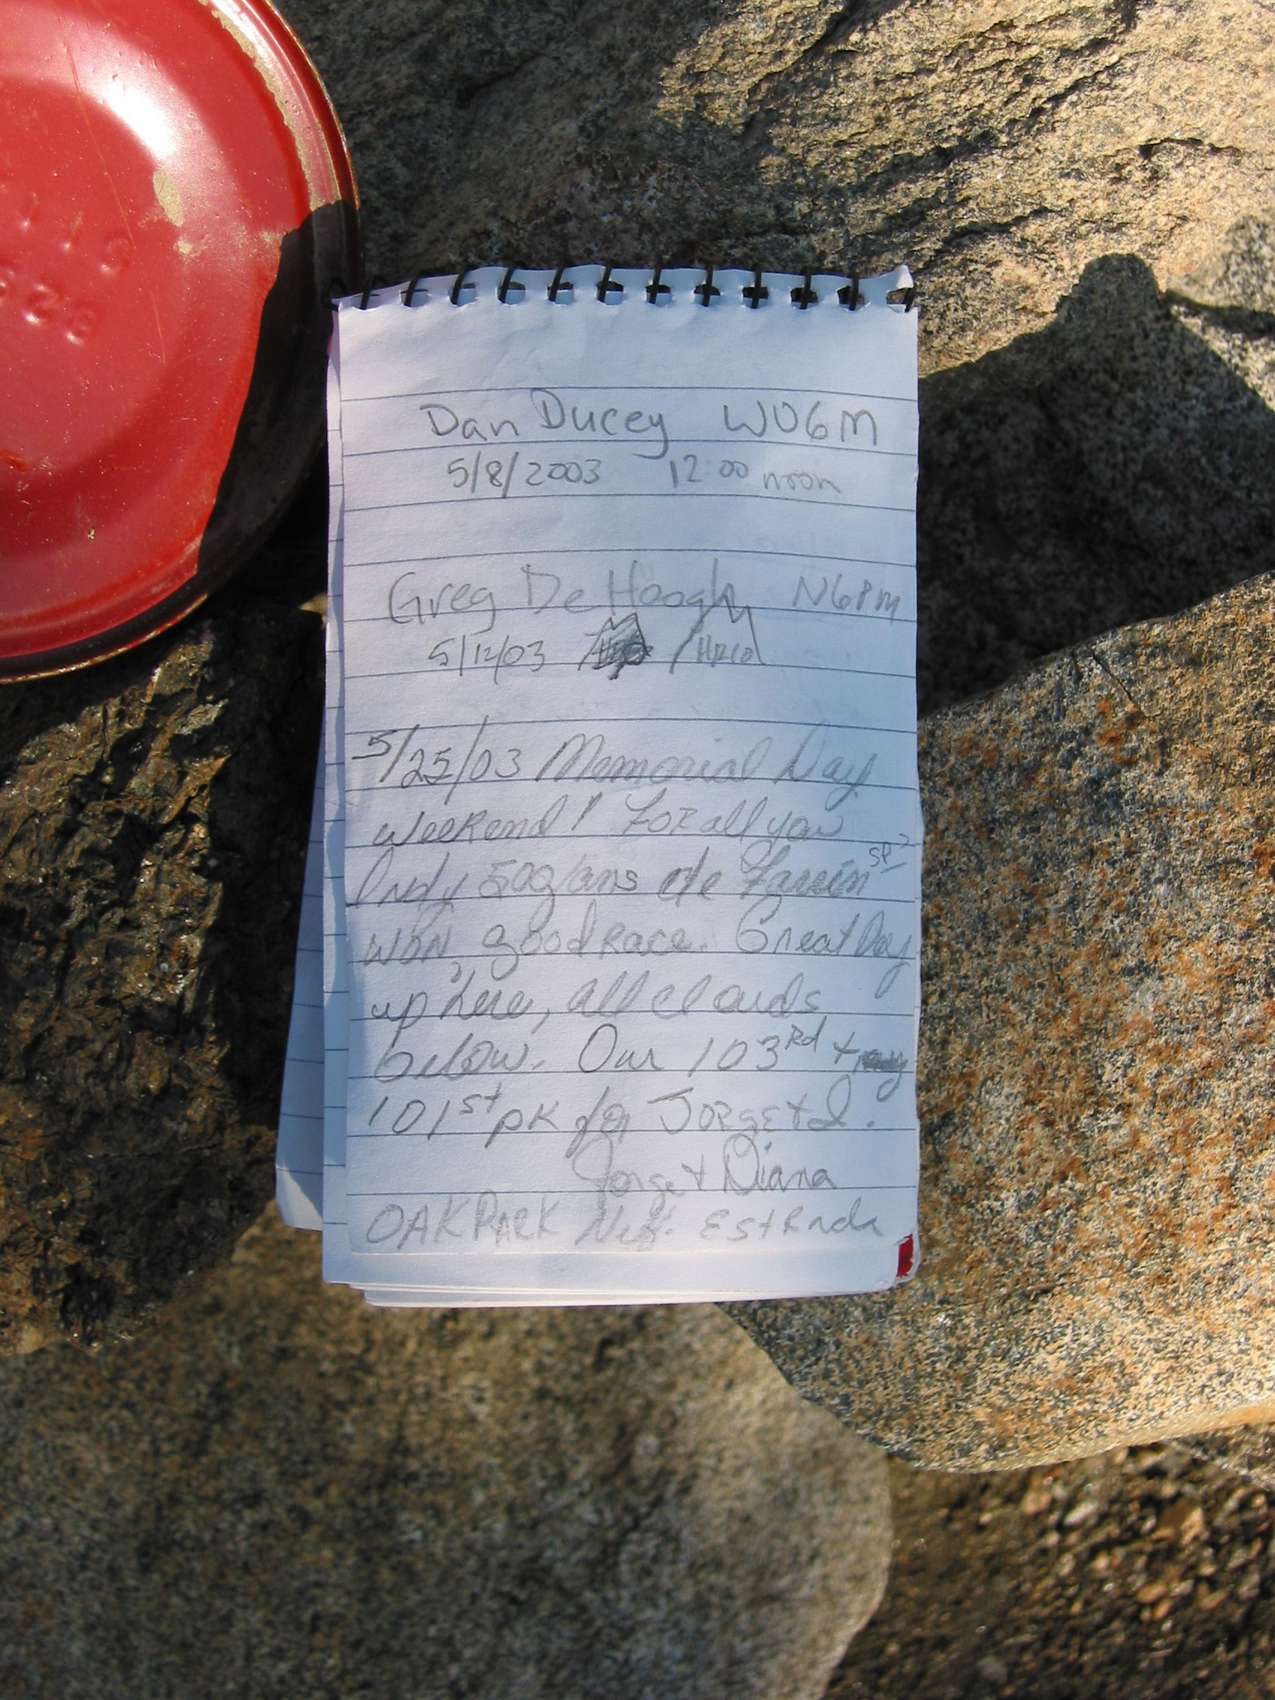 Dan Ducey WO6M
5/8/2003 12:00 noon
Greg De Hoogh N6PM
5/12/03
5/25/03 Memorial Day
weekend! For all you
Indy 500 fans
won, good race. Great Day
up here, all clouds
below. Our 103rd +
101st pk for Jorge + I.
Jorge + Diana
OAK PARK Estrada